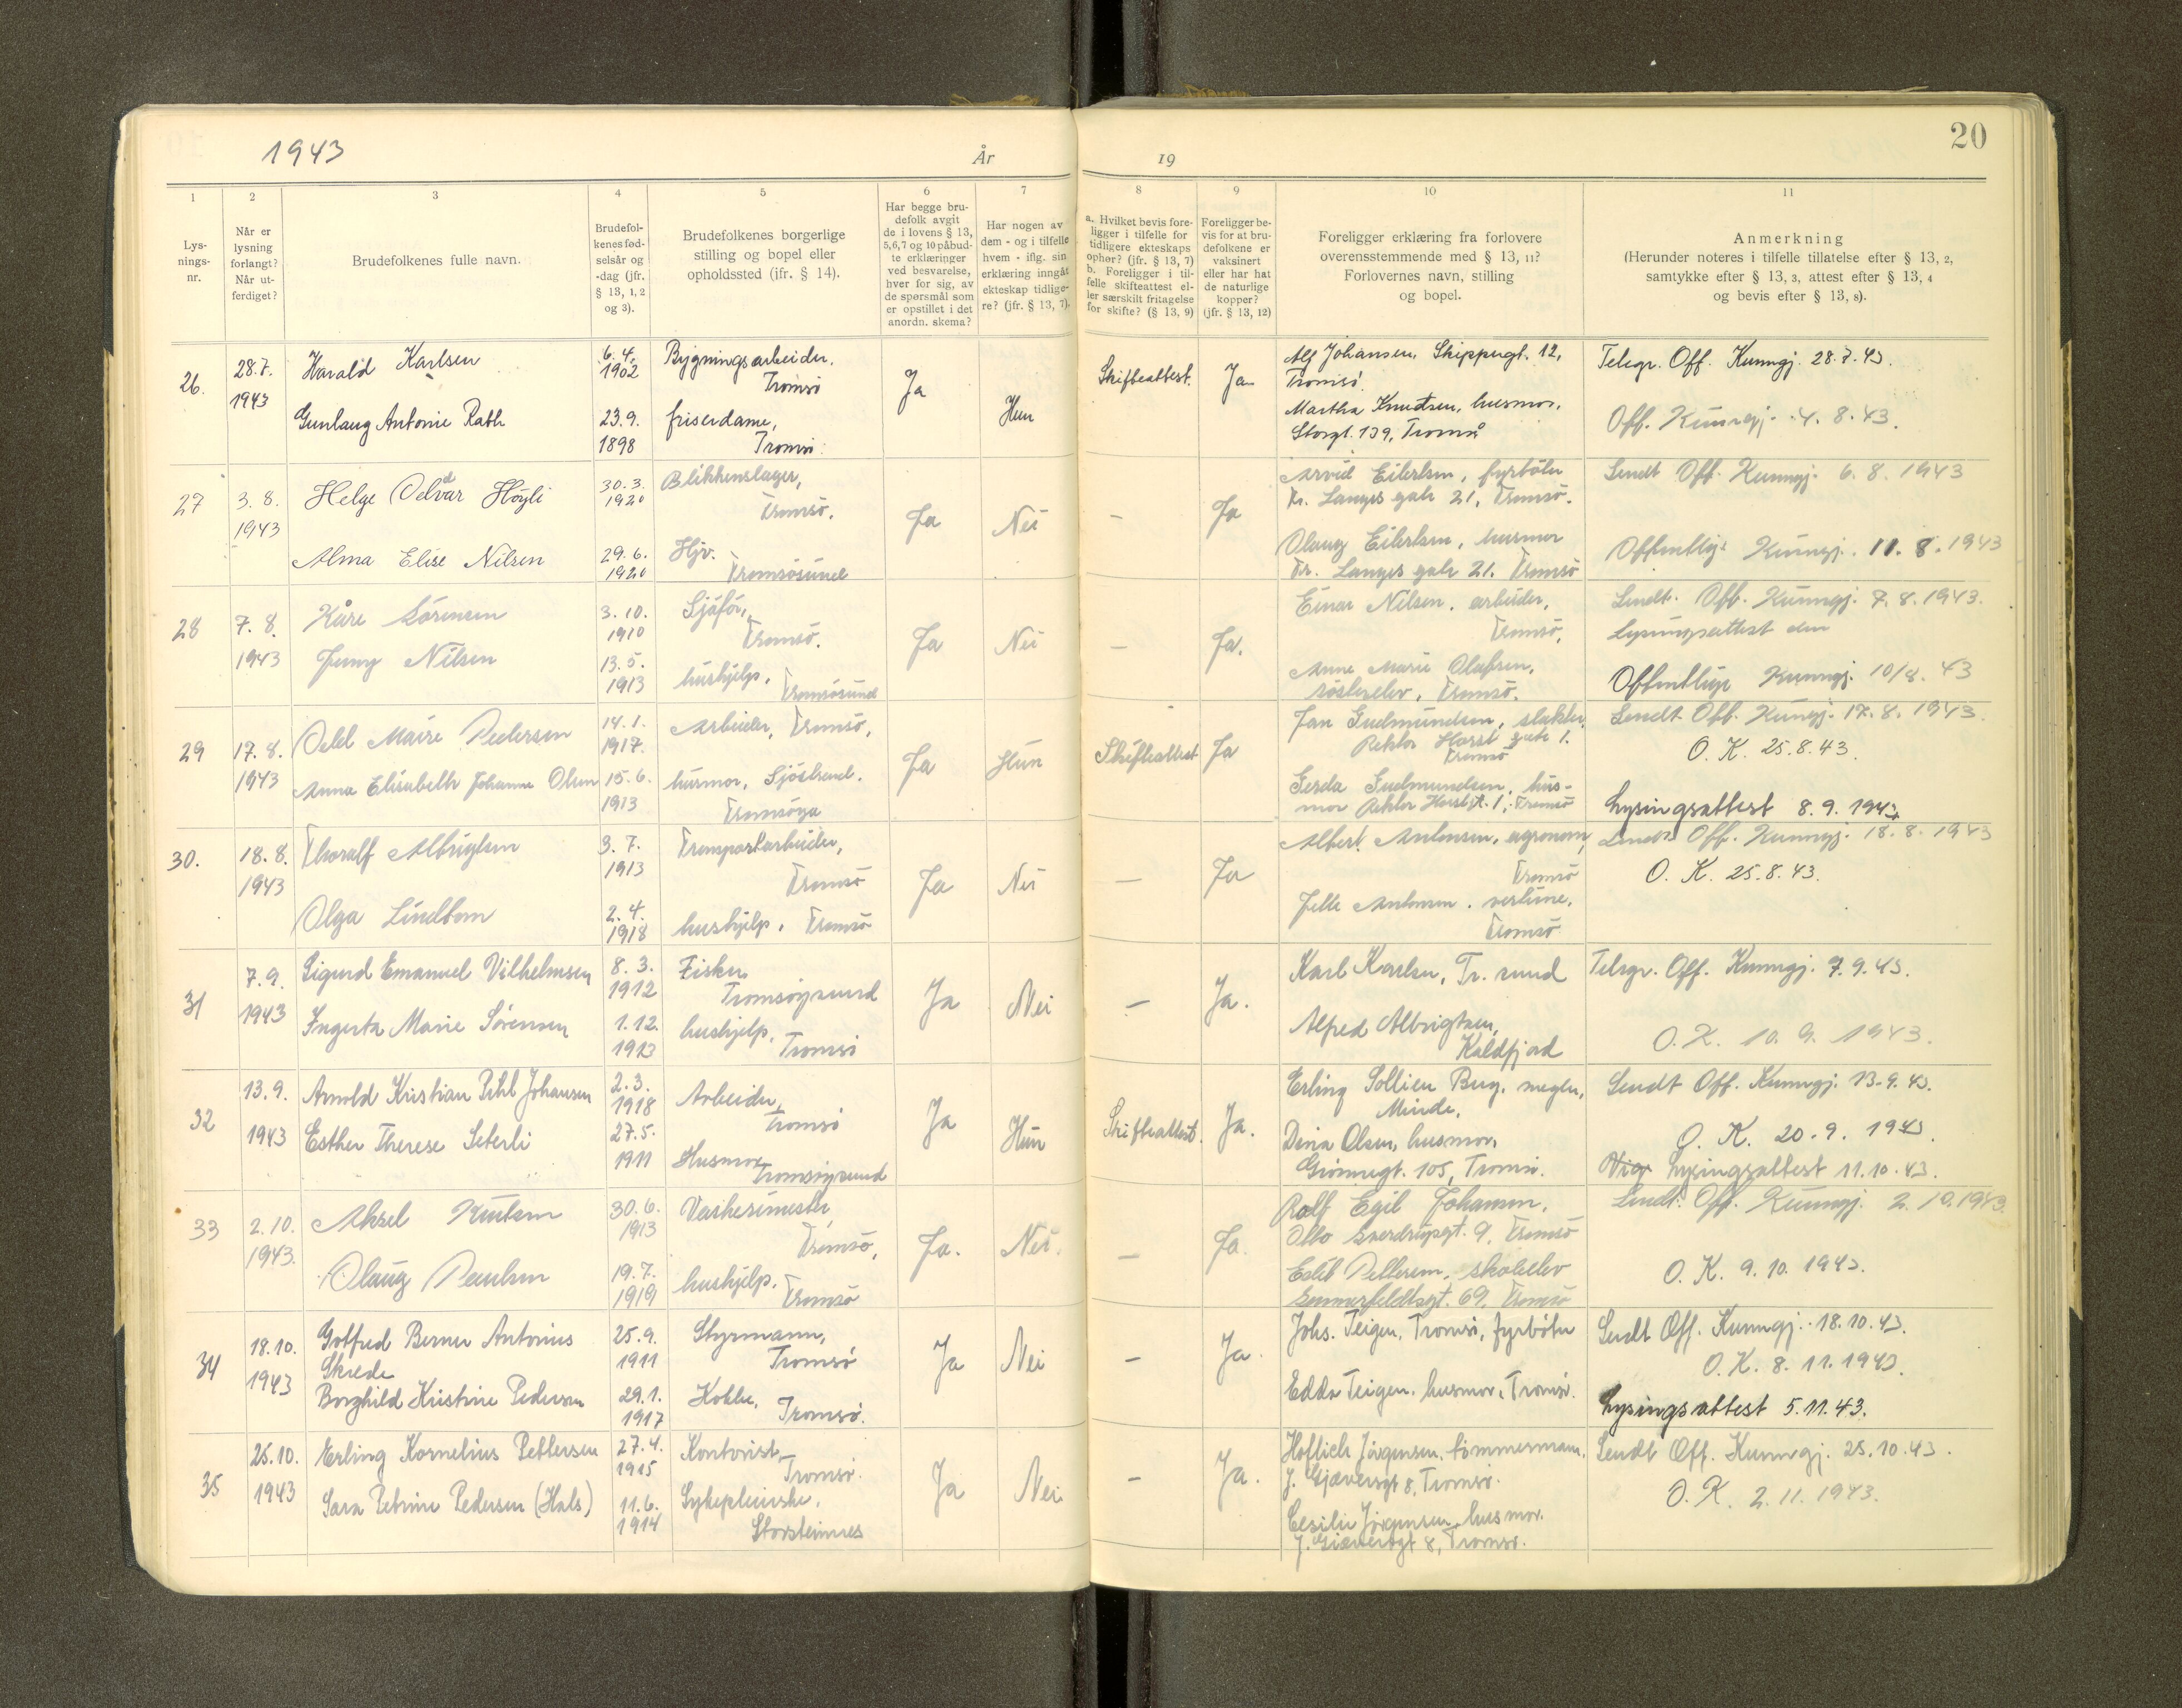 1943
År
19
20
1
2
3
4
5
6
7
8
9
10
11
Lys-
nings-
nr.
Når er
lysning
forlangt?
Når ut-
ferdiget?
Brudefolkenes fulle navn.
Brudefol-
kenes fød-
selsår og
-dag (jfr.
§ 13, 1, 2
og 3).
Brudefolkenes borgerlige
stilling og bopel eller
opholdssted (ifr. § 14).
Har begge bru-
defolk avgit
de i lovens § 13,
5,6,7 og 10 påbud-
te erklæringer
ved besvarelse,
hver for sig, av
de spørsmål som
er opstillet i det
anordn. skema?
Har nogen av
dem - og i tilfelle
hvem - iflg. sin
erklæring inngåt
ekteskap tidlige-
re? (jfr. § 13, 7).
a. Hvilket bevis fore-
ligger i tilfelle for
tidligere ekteskaps
ophør? (jfr. § 13, 7)
b. Foreligger i til-
felle skifteattest el-
ler særskilt fritagelse
for skifte? (§ 13, 9)
Foreligger be-
vis for at bru-
defolkene er
vaksinert
eller har hat
de naturlige
kopper?
(jfr. § 13, 12)
Foreligger erklæring fra forlovere
overensstemmende med § 13, 11?
Forlovernes navn, stilling
og bopel.
Anmerkning
(Herunder noteres i tilfelle tillatelse efter § 13, 2,
samtykke efter § 13, 3, attest efter § 13, 4
og bevis efter § 13, 8).
26.
28.7.
1943
Harald Karlsen
Gunlaug Antonie Rath
6.4.
1902
23.9.
1898
Bygningsarbeider.
Tromsö
friserdame,
Tromsö.
Ja
Hun
Skifteattest.
Ja
Alf Johansen, Skippergt. 12,
Tromsö.
Martha Knudsen, husmor,
Storgt. 139, Tromsö
Telegr. Off. Kunngj. 28.7.43.
Off. Kunngj. 4.8.43.
27
3.8.
1943
Helge Oddvar Høgli
Alma Elise Nilsen
30.3.
1920
29.6.
1920
Blikkenslager,
Tromsö.
Hjv.
Tromsösund
Ja
Nei
—
Ja
Arvid Eilertsen, fyrböter
Fr. Langes gate 21, Tromsö.
Olaug Eilertsen, husmor
Fr. Langes gate 21. Tromsö
Sendt Off. Kunngj. 6.8.1943
Offentlig Kunngj. 11.8.1943
28
7.8.
1943
Kåre Sörensen
Jenny Nilsen
3.10.
1910
13.5.
1913
Sjåför,
Tromsö.
hushjelp,
Tromsösund
Ja
Nei
—
Ja.
Einar Nilsen, arbeider,
Tromsö,
Anne Marie Olafsen,
Tromsö.
Sendt. Off. Kunngj. 7.8.1943.
Lysningsattest den
Offentlige Kunngj. 10/8. 43
29
17.8.
1943
Pedersen
Anna Elisabeth Johanne Olsen
14.1.
1917.
15.6.
1913
Arbeider, Tromsö,
husmor, Sjöstrand.
Tromsöya
Ja
Hun
Skifteattest
Ja
Jan Gudmundsen, slakter,
Rektor Horst gate 1.
Tromsö
Gerda Gudmundsen, hus-
mor Rektor Horstgt. 1, Tromsö
Sendt Off. Kunngj. 17.8.1943.
O.K. 25.8.43.
Lysingsattest 8.9.1943
30.
18.8.
1943
Thoralf Albrigtsen
Olga Lindbom
3.7.
1913
2.4.
1918
Transportarbeider,
Tromsö
hushjelp, Tromsö
Ja
Nei
—
Ja
Albert Antonsen, agronom,
Tromsö
Antonsen, vertinne,
Tromsö
Sendt Off. Kunngj. 18.8.1943
O.K. 25.8.43.
31
7.9.
1943
Sigurd Emanuel Vilhelmsen
Ingerta Marie Sörensen
8.3.
1912
1.12.
1913
Fisker,
Tromsöysund
hushjelp,
Tromsö
Ja
Nei
—
Ja.
Karl Karlsen, Tr. sund
Alfred Albrigtsen,
Kaldfjord
Telegr. Off. Kunngj. 7.9.43.
O.K. 10.9.1943.
32
13.9.
1943
Arnold Kristian Johansen
Esther Therese Seterli
2.3.
1918
27.5.
1911
Arbeider,
Tromsö
Husmor
Tromsöysund
Ja
Hun
Skifteattest.
Ja.
Erling Sollien megler,
Minde,
Dina Olsen, husmor,
Grönnegt. 105, Tromsö.
Sendt Off. Kunngj. 13.9.43.
O.K. 20.9.1943.
Lysingsattest 11.10.43.
33
2.10.
1943.
Aksel Knutsen
Olaug Paulsen
30.6.
1913
19.7.
1919
Vaskerimester
Tromsö,
hushjelp.
Tromsö
Ja.
Nei.
—
Ja.
Rolf Egil Johansen,
Otto Sverdrupsgt. 9, Tromsö
Edit Pettersen, skoleelev
Sommerfeldtsgt. 69, Tromsö
Sendt. Off. Kunngj. 2.10.1943.
O.K. 9.10.1943.
34
18.10.
1943
Gotfred Berner Antonius
Skrede
Borghild Kristine Pedersen
25.9.
1911
29.1.
1917
Styrmann,
Tromsö
Kokke,
Tromsö.
Ja
Nei
—
Ja.
Johs. Teigen, Tromsö, fyrböter
Edda Teigen, husmor, Tromsö.
Sendt Off. Kunngj. 18.10.43.
O.K. 8.11.1943.
Lysingsattest 5.11.43.
35
25.10.
1943
Erling Kornelius Pettersen
Sara Petrine Pedersen (Hals)
27.4.
1915
11.6.
1914
Kontorist
Tromsö.
Sykepleierske,
Storsteinnes
Ja
Nei
—
Ja.
Jörgensen, tömmermann,
J. Gjæversgt 8, Tromsö.
Cesilie Jörgensen, husmor.
J. Gjæversgt 8, Tromsö.
Sendt Off. Kunngj. 25.10.43.
O.K. 2.11.1943.